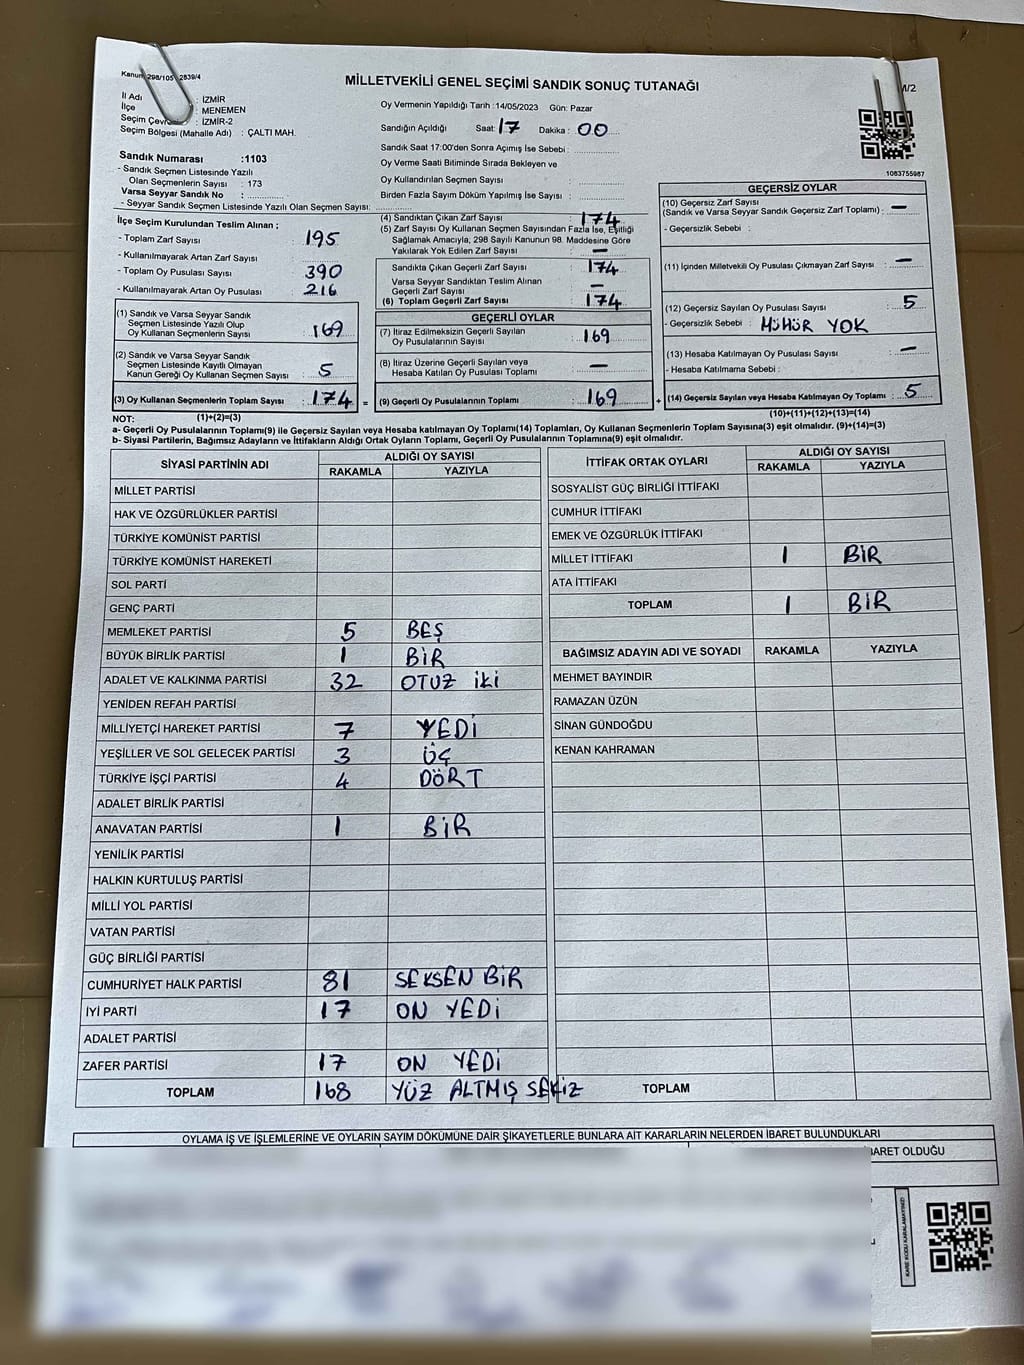 Kanun: 298/105 2839/4
MİLLETVEKİLİ GENEL SEÇİMİ SANDIK SONUÇ TUTANAĞI
/2
İl Adı : İZMİR
İlçe : MENEMEN
Seçim Çevresi : İZMİR-2
Seçim Bölgesi (Mahalle Adı) : ÇALTI MAH.
Oy Vermenin Yapıldığı Tarih :14/05/2023 Gün: Pazar
Sandığın Açıldığı Saat: 17 Dakika : 00
Sandık Saat 17:00'den Sonra Açımış İse Sebebi :
Oy Verme Saati Bitiminde Sırada Bekleyen ve
Oy Kullandırılan Seçmen Sayısı :
Birden Fazla Sayım Döküm Yapılmış İse Sayısı :
1083755987
Sandık Numarası :1103
- Sandık Seçmen Listesinde Yazılı
Olan Seçmenlerin Sayısı : 173
Varsa Seyyar Sandık No :
- Seyyar Sandık Seçmen Listesinde Yazılı Olan Seçmen Sayısı:
İlçe Seçim Kurulundan Teslim Alınan ;
- Toplam Zarf Sayısı : 195
- Kullanılmayarak Artan Zarf Sayısı :
- Toplam Oy Pusulası Sayısı : 390
- Kullanılmayarak Artan Oy Pusulası : 216
(1) Sandık ve Varsa Seyyar Sandık
Seçmen Listesinde Yazılı Olup
Oy Kullanan Seçmenlerin Sayısı : 169
(2) Sandık ve Varsa Seyyar Sandık
Seçmen Listesinde Kayıtlı Olmayan
Kanun Gereği Oy Kullanan Seçmen Sayısı : 5
(3) Oy Kullanan Seçmenlerin Toplam Sayısı : 174 =
(1)+(2)=(3)
(4) Sandıktan Çıkan Zarf Sayısı : 174
(5) Zarf Sayısı Oy Kullanan Seçmen Sayısından Fazla İse, Eşitliği
Sağlamak Amacıyla; 298 Sayılı Kanunun 98. Maddesine Göre
Yakılarak Yok Edilen Zarf Sayısı : —
Sandıkta Çıkan Geçerli Zarf Sayısı : 174
Varsa Seyyar Sandıktan Teslim Alınan
Geçerli Zarf Sayısı : —
(6) Toplam Geçerli Zarf Sayısı : 174
GEÇERLİ OYLAR
(7) İtiraz Edilmeksizin Geçerli Sayılan
Oy Pusulalarının Sayısı : 169
(8) İtiraz Üzerine Geçerli Sayılan veya
Hesaba Katılan Oy Pusulası Toplamı : —
(9) Geçerli Oy Pusulalarının Toplamı : 169 +
GEÇERSİZ OYLAR
(10) Geçersiz Zarf Sayısı
(Sandık ve Varsa Seyyar Sandık Geçersiz Zarf Toplamı) : —
- Geçersizlik Sebebi :
(11) İçinden Milletvekili Oy Pusulası Çıkmayan Zarf Sayısı : —
(12) Geçersiz Sayılan Oy Pusulası Sayısı : 5
- Geçersizlik Sebebi : MÜHÜR YOK
(13) Hesaba Katılmayan Oy Pusulası Sayısı : —
- Hesaba Katılmama Sebebi :
(14) Geçersiz Sayılan veya Hesaba Katılmayan Oy Toplamı : 5
(10)+(11)+(12)+(13)=(14)
NOT:
a- Geçerli Oy Pusulasının Toplamı(9) ile Geçersiz Sayılan veya Hesaba katılmayan Oy Toplamı(14) Toplamları, Oy Kullanan Seçmenlerin Toplam Sayısına(3) eşit olmalıdır. (9)+(14)=(3)
b- Siyasi Partilerin, Bağımsız Adayların ve İttifakların Aldığı Ortak Oyların Toplamı, Geçerli Oy Pusulalarının Toplamına(9) eşit olmalıdır.
SİYASİ PARTİNİN ADI
ALDIĞI OY SAYISI
RAKAMLA YAZIYLA
MİLLET PARTİSİ
HAK VE ÖZGÜRLÜKLER PARTİSİ
TÜRKİYE KOMÜNİST PARTİSİ
TÜRKİYE KOMÜNİST HAREKETİ
SOL PARTİ
GENÇ PARTİ
MEMLEKET PARTİSİ 5 BEŞ
BÜYÜK BİRLİK PARTİSİ 1 BİR
ADALET VE KALKINMA PARTİSİ 32 OTUZ İKİ
YENİDEN REFAH PARTİSİ
MİLLİYETÇİ HAREKET PARTİSİ 7 YEDİ
YEŞİLLER VE SOL GELECEK PARTİSİ 3 ÜÇ
TÜRKİYE İŞÇİ PARTİSİ 4 DÖRT
ADALET BİRLİK PARTİSİ
ANAVATAN PARTİSİ 1 BİR
YENİLİK PARTİSİ
HALKIN KURTULUŞ PARTİSİ
MİLLİ YOL PARTİSİ
VATAN PARTİSİ
GÜÇ BİRLİĞİ PARTİSİ
CUMHURİYET HALK PARTİSİ 81 SEKSEN BİR
İYİ PARTİ 17 ON YEDİ
ADALET PARTİSİ
ZAFER PARTİSİ 17 ON YEDİ
TOPLAM 168 YÜZ ALTMIŞ SEKİZ
İTTİFAK ORTAK OYLARI
ALDIĞI OY SAYISI
RAKAMLA YAZIYLA
SOSYALİST GÜÇ BİRLİĞİ İTTİFAKI
CUMHUR İTTİFAKI
EMEK VE ÖZGÜRLÜK İTTİFAKI
MİLLET İTTİFAKI 1 BİR
ATA İTTİFAKI
TOPLAM 1 BİR
BAĞIMSIZ ADAYIN ADI VE SOYADI RAKAMLA YAZIYLA
MEHMET BAYINDIR
RAMAZAN ÜZÜN
SİNAN GÜNDOĞDU
KENAN KAHRAMAN
TOPLAM
OYLAMA İŞ VE İŞLEMLERİNE VE OYLARIN SAYIM DÖKÜMÜNE DAİR ŞİKAYETLERLE BUNLARA AİT KARARLARIN NELERDEN İBARET BULUNDUKLARI
BARET OLDUĞU
KARE KODU KARALAMAYINIZ!